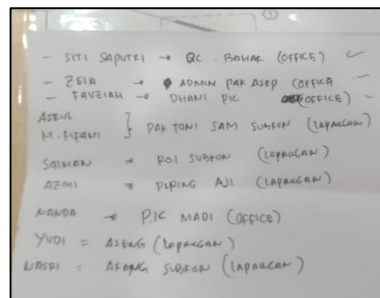 - SITI SAPUTRI → QC BAHAR (OFFICE)
- ZELA → ADMIN PAK ASEP (OFFICE)
- FAUZIAH → DHANI PIC (OFFICE)
ASRUL
M. FIFANI } PAK TONI SAM SUBKON (LAPANGAN)
SAIMAN → ROI SUBKON (LAPANGAN)
AZMI → PIPING AJI (LAPANGAN)
NANDA → P.IC MADI (OFFICE)
YUDI = ASENG (LAPANGAN)
NASRI = AFANG SUBKON (LAPANGAN)